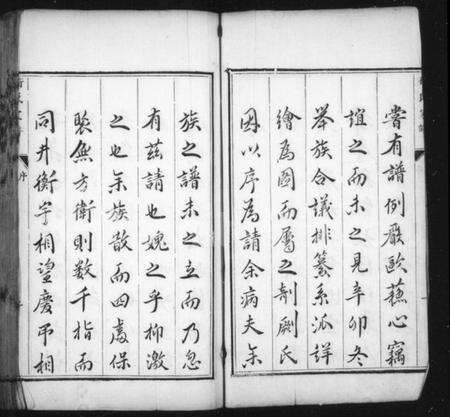 嘗有譜例廢歐蘇心竊
誼之而未之見辛卯冬
举族合議排纂系派詳
繪為圖而屬之剞劂氏
因以序為請余病夫余
族之譜未之立而乃忽
有茲請也媿之乎抑激
之也余族散而四處保
聚無方衛則数千指而
同井衡宇相望慶弔相
序